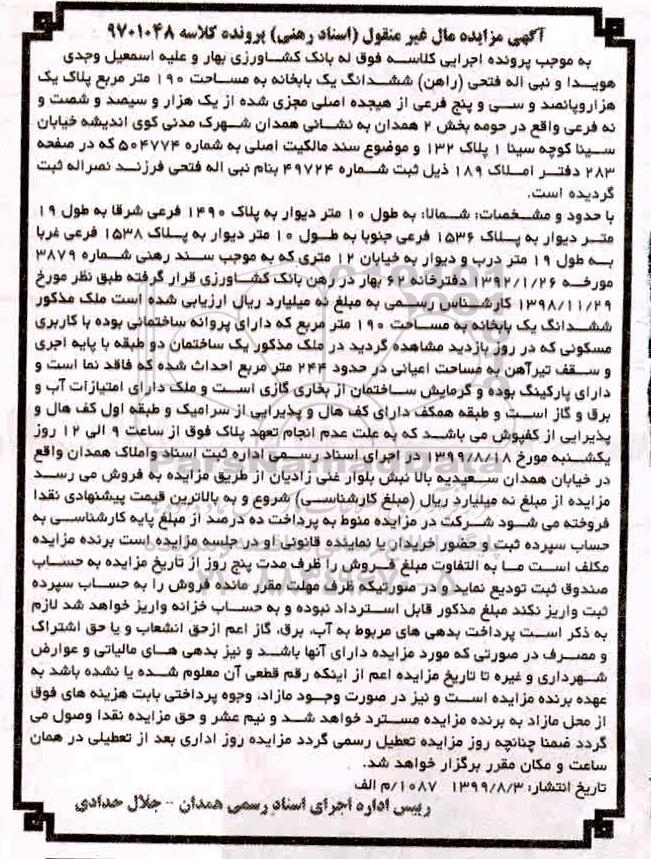 آگهی مزایده مال غیر منقول (اسناد رهنی) پرونده کلاسه ۹۷۰۱۰۴۸
به موجب پرونده اجرایی کلاسه فوق له بانک کشاورزی بهار و علیه اسمعیل وجدی
هویدا و نبی اله فتحی (راهن) ششدانگ یک بابخانه به مساحت ۱۹۰ متر مربع پلاک یک
هزاروپانصد و سی و پنج فرعی از هیجده اصلی مجزی شده از یک هزار و سیصد و شصت و
نه فرعی واقع در حومه بخش ۲ همدان به نشانی همدان شهرک مدنی کوی اندیشه خیابان
سینا کوچه سینا ۱ پلاک ۱۳۲ و موضوع سند مالکیت اصلی به شماره ۵۰۴۷۷۴ که در صفحه
۲۸۳ دفتر املاک ۱۸۹ ذیل ثبت شماره ۴۹۷۲۴ بنام نبی اله فتحی فرزند نصراله ثبت
گردیده است.
با حدود و مشخصات: شمالا: به طول ۱۰ متر دیوار به پلاک ۱۴۹۰ فرعی شرقا به طول ۱۹
متر دیوار به پلاک ۱۵۳۶ فرعی جنوبا به طول ۱۰ متر دیوار به پلاک ۱۵۳۸ فرعی غربا
به طول ۱۹ متر درب و دیوار به خیابان ۱۲ متری که به موجب سند رهنی شماره ۳۸۷۹
مورخه ۱۳۹۲/۱/۲۶ دفترخانه ۶۲ بهار در رهن بانک کشاورزی قرار گرفته طبق نظر مورخ
۱۳۹۸/۱۱/۲۹ کارشناس رسمی به مبلغ نه میلیارد ریال ارزیابی شده است ملک مذکور
ششدانگ یک بابخانه به مساحت ۱۹۰ متر مربع که دارای پروانه ساختمانی بوده با کاربری
مسکونی که در روز بازدید مشاهده گردید در ملک مذکور یک ساختمان دو طبقه با پایه اجری
و سقف تیرآهن به مساحت اعیانی در حدود ۲۴۴ متر مربع احداث شده که فاقد نما است و
دارای پارکینگ بوده و گرمایش ساختمان از بخاری گازی است و ملک دارای امتیازات آب و
برق و گاز است و طبقه همکف دارای کف هال و پذیرایی از سرامیک و طبقه اول کف هال و
پذیرایی از کفپوش می باشد که به علت عدم انجام تعهد پلاک فوق از ساعت ۹ الی ۱۲ روز
یکشنبه مورخ ۱۳۹۹/۸/۱۸ در اجرای اسناد رسمی اداره ثبت اسناد واملاک همدان واقع
در خیابان همدان سعیدیه بالا نبش بلوار غنی زادیان از طریق مزایده به فروش می رسد
مزایده از مبلغ نه میلیارد ریال (مبلغ کارشناسی) شروع و به بالاترین قیمت پیشنهادی نقدا
فروخته می شود شرکت در مزایده منوط به پرداخت ده درصد از مبلغ پایه کارشناسی به
حساب سپرده ثبت و حضور خریدار یا نماینده قانونی او در جلسه مزایده است برنده مزایده
مکلف است ما به التفاوت مبلغ فروش را ظرف مدت پنج روز از تاریخ مزایده به حساب
صندوق ثبت تودیع نماید و در صورتیکه ظرف مهلت مقرر مانده فروش را به حساب سپرده
ثبت واریز نکند مبلغ مذکور قابل استرداد نبوده و به حساب خزانه واریز خواهد شد لازم
به ذکر است پرداخت بدهی های مربوط به آب، برق، گاز اعم ازحق انشعاب و یا حق اشتراک
و مصرف در صورتی که مورد مزایده دارای آنها باشد و نیز بدهی های مالیاتی و عوارض
شهرداری و غیره تا تاریخ مزایده اعم از اینکه رقم قطعی آن معلوم شده یا نشده باشد به
عهده برنده مزایده است و نیز در صورت وجود مازاد، وجوه پرداختی بابت هزینه های فوق
از محل مازاد به برنده مزایده مسترد خواهد شد و نیم عشر و حق مزایده نقدا وصول می
گردد ضمنا چنانچه روز مزایده تعطیل رسمی گردد مزایده روز اداری بعد از تعطیلی در همان
ساعت و مکان مقرر برگزار خواهد شد.
تاریخ انتشار: ۱۳۹۹/۸/۳ ۱۰۸۷/م الف
رییس اداره اجرای اسناد رسمی همدان - جلال حدادی
ParsNamadData